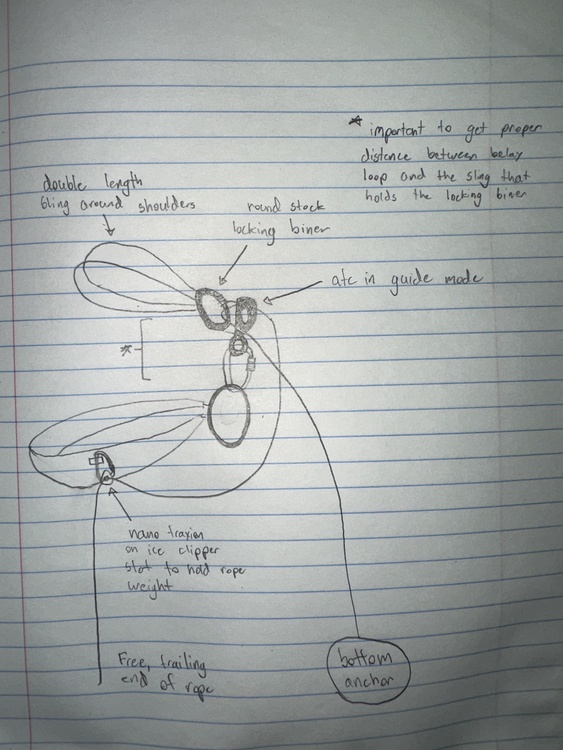 * important to get proper
distance between belay
loop and the sling that
holds the locking biner
double length
sling around shoulders
round stock
locking biner
atc in guide mode
*
nano traxion
on ice clipper
slot to hold rope
weight
Free, trailing
end of rope
bottom
anchor